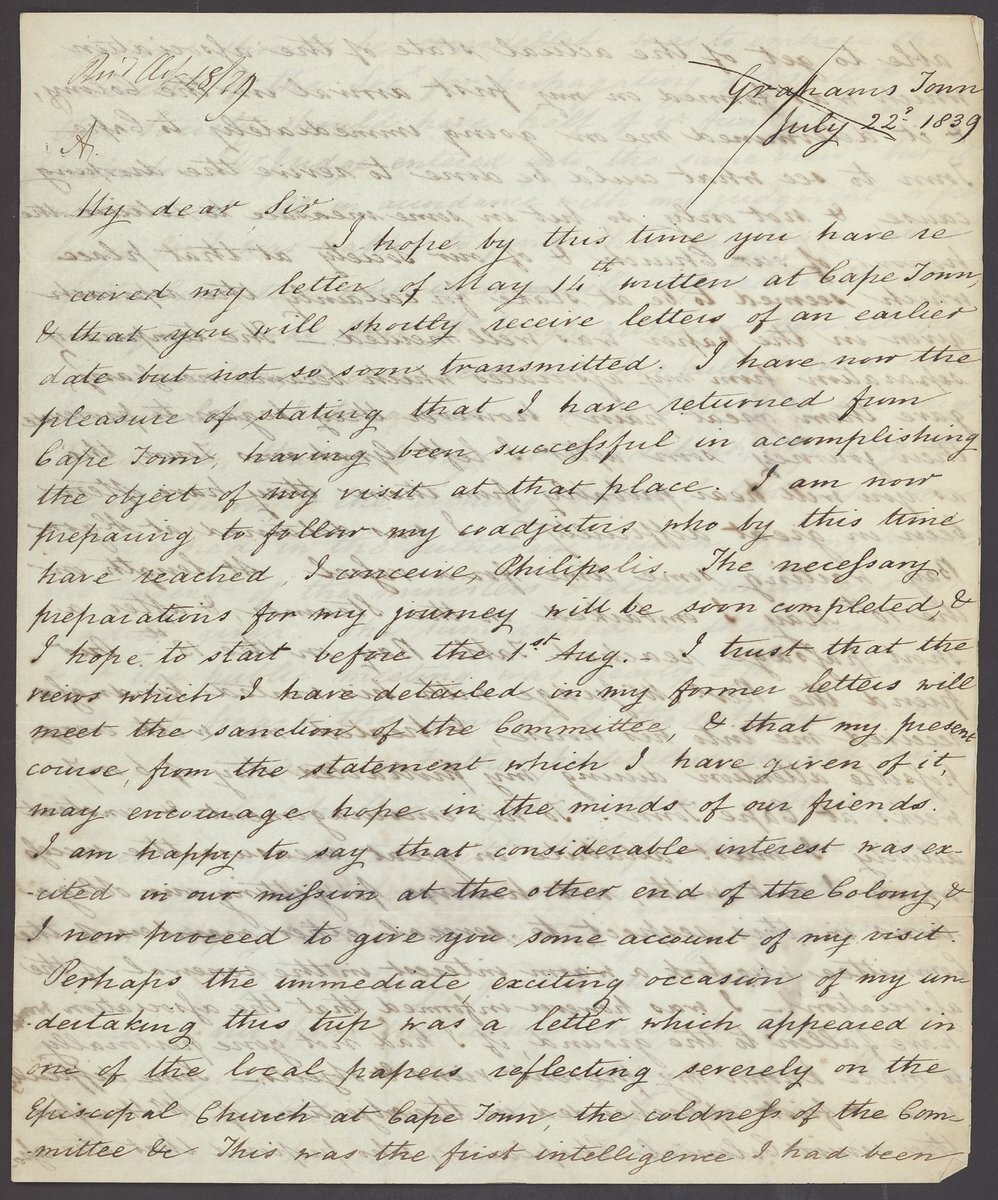 Oct 18/39
Grahams Town
July 22d 1839
A.
My dear Sir
I hope by this time you have re
ceived my letter of May 14th written at Cape Town,
& that you will shortly receive letters of an earlier
date but not so soon transmitted. I have now the
pleasure of stating that I have returned from
Cape Town, having been successful in accomplishing
the object of my visit at that place. I am now
preparing to follow my coadjutors who by this time
have reached, I conceive, Philipolis. The necessary
preparations for my journey will be soon completed, &
I hope to start before the 1st Aug. - I trust that the
views which I have detailed in my former letters will
meet the sanction of the Committee, & that my present
course, from the statement which I have given of it,
may encourage hope in the minds of our friends.
I am happy to say that considerable interest was ex-
cited in our mission at the other end of the Colony, &
I now proceed to give you some account of my visit.
Perhaps the immediate, exciting occasion of my un-
dertaking this trip was a letter which appeared in
one of the local papers reflecting severely on the
Episcopal Church at Cape Town, the coldness of the Com-
mittee &c. This was the first intelligence I had been